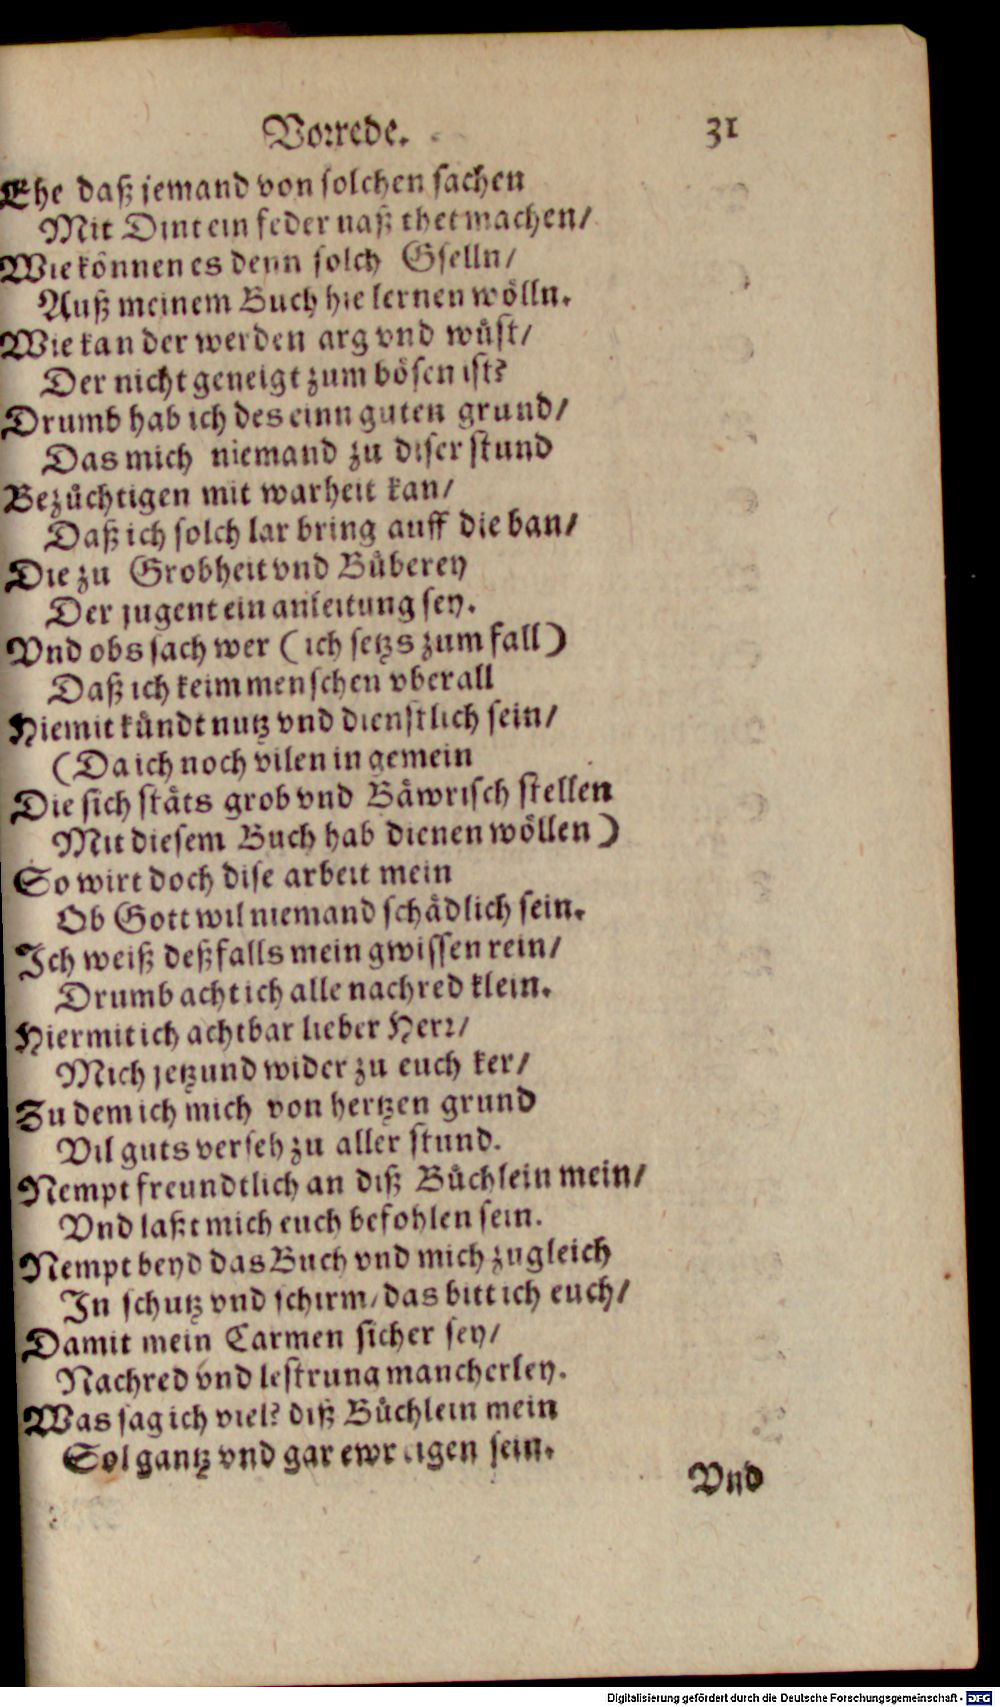 Vorrede. 31
Ehe daß jemand von solchen sachen
Mit Dint ein feder naß thet machen/
Wie können es denn solch Gselln/
Auß meinem Buch hie lernen wölln.
Wie kan der werden arg vnd wüst/
Der nicht geneigt zum bösen ist?
Drumb hab ich des einn guten grund/
Das mich niemand zu diser stund
Bezüchtigen mit warheit kan/
Daß ich solch lar bring auff die ban/
Die zu Grobheit vnd Büberey
Der jugent ein anleitung sey.
Vnd obs sach wer (ich setzs zum fall)
Daß ich keim menschen vberall
Hiemit kündt nutz vnd dienstlich sein/
(Da ich noch vilen in gemein
Die sich stäts grob vnd Bäwrisch stellen
Mit diesem Buch hab dienen wöllen)
So wirt doch dise arbeit mein
Ob Gott wil niemand schädlich sein.
Ich weiß deßfalls mein gwissen rein/
Drumb acht ich alle nachred klein.
Hiermit ich achtbar lieber Herr/
Mich jetzund wider zu euch ker/
Zu dem ich mich von hertzen grund
Vil guts verseh zu aller stund.
Nempt freundtlich an diß Büchlein mein/
Vnd laßt mich euch befohlen sein.
Nempt beyd das Buch vnd mich zugleich
In schutz vnd schirm/ das bitt ich euch/
Damit mein Carmen sicher sey/
Nachred vnd lestrung mancherley.
Was sag ich viel? diß Büchlein mein
Sol gantz vnd gar ewr eigen sein.
Vnd
Digitalisierung gefördert durch die Deutsche Forschungsgemeinschaft - DFG